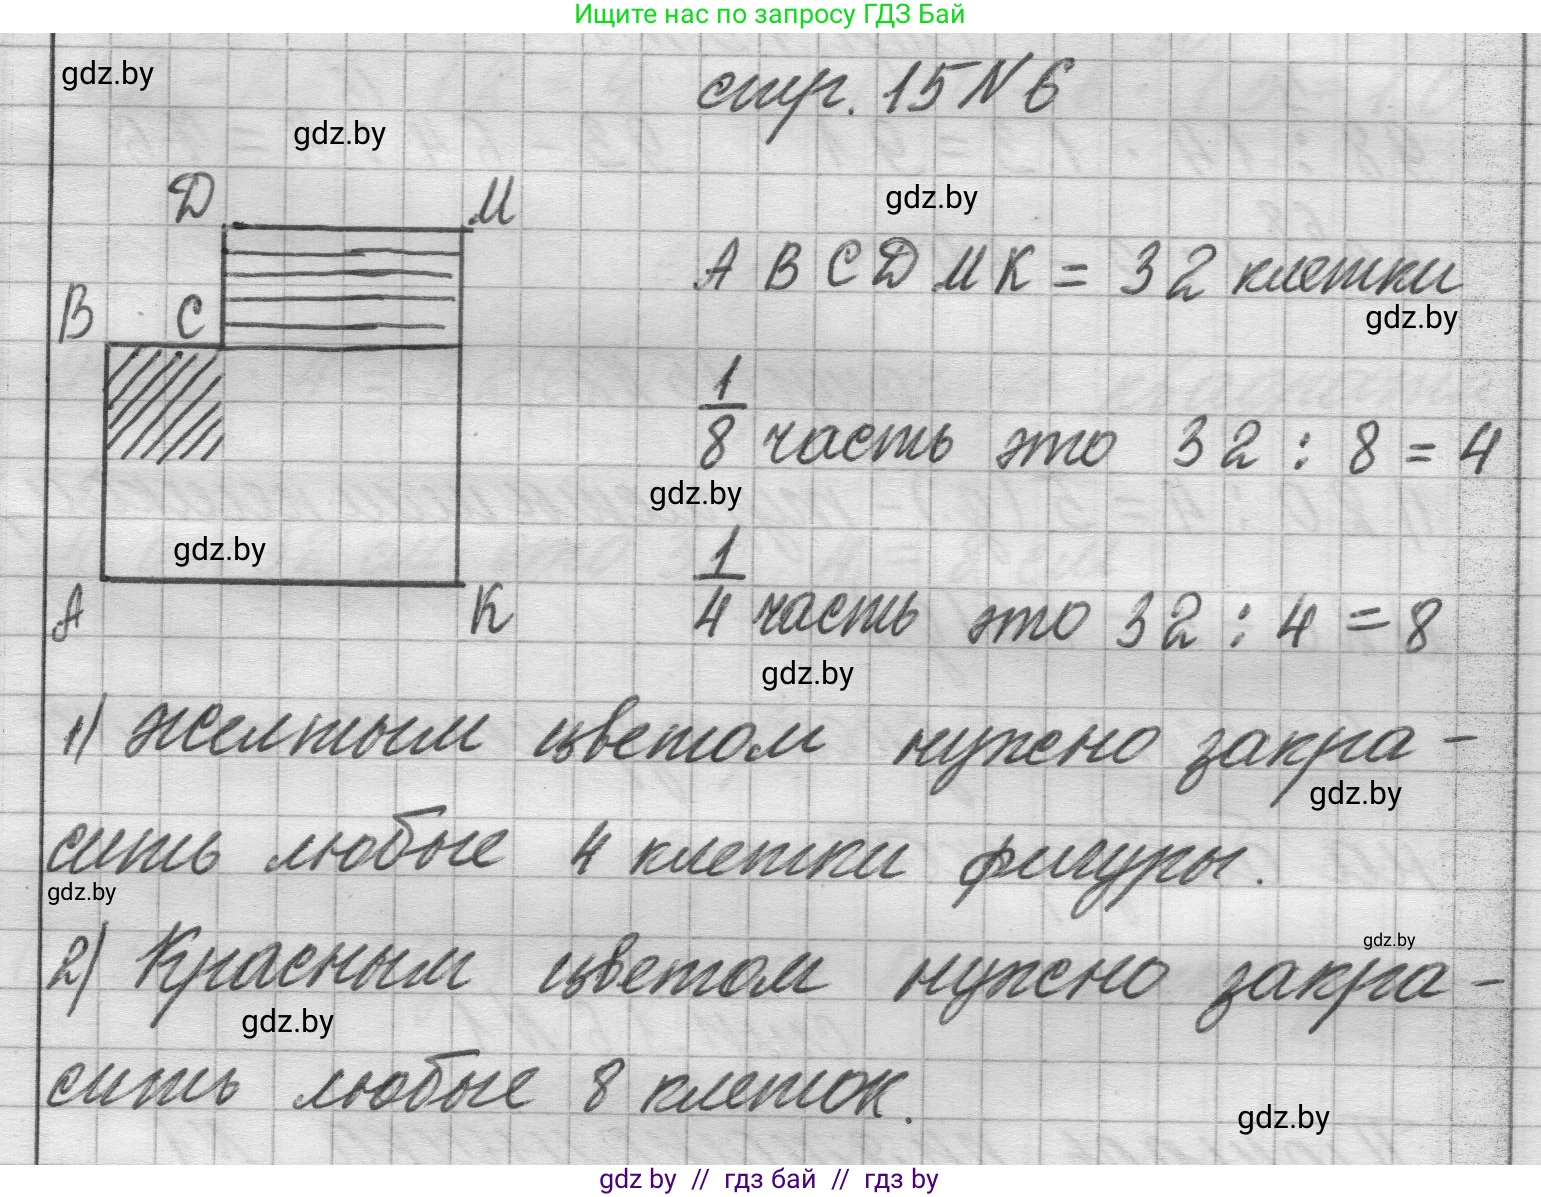 Ищите нас по запросу ГДЗ Бай
gdz.by
стр. 15 N 6
gdz.by
Д М
gdz.by
А В С Д М К = 32 клетки
В С
gdz.by
1/8 часть это 32 : 8 = 4
gdz.by
gdz.by
1/4 часть это 32 : 4 = 8
А К
gdz.by
1) Желтым цветом нужно закра-
gdz.by
сить любые 4 клетки фигуры.
gdz.by
2) Красным цветом нужно закра-
gdz.by
gdz.by
сить любые 8 клеток.
gdz.by
gdz by // гдз бай // гдз by